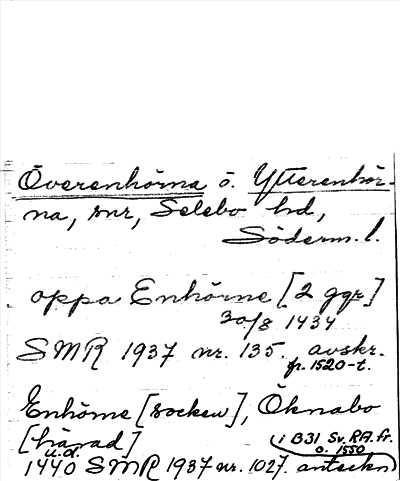 Överenhörna o. Ytterenhör-
na, snr, Selebo hd,
Söderm. l.
oppa Enhörne [2 ggr]
30/8 1434
SMR 1937 nr. 135. avskr.
fr. 1520-t.
Enhörne [socken], Öknabo
[härad] (i B31 Sv. RA. fr.
u.d. o. 1550
1440 SMR 1937 nr. 1027. anteckn)